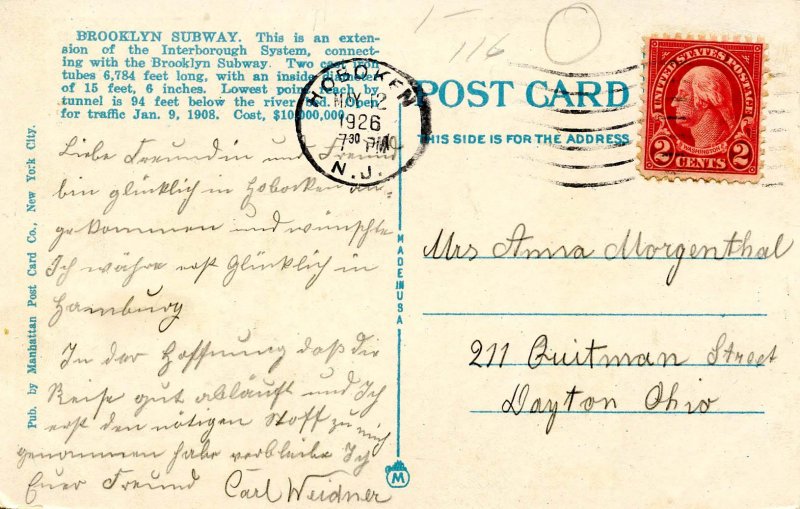 BROOKLYN SUBWAY. This is an exten-
sion of the Interborough System, connect-
ing with the Brooklyn Subway. Two cast iron
tubes 6,784 feet long, with an inside diameter
of 15 feet, 6 inches. Lowest point reach by
tunnel is 94 feet below the river bed. Open
for traffic Jan. 9, 1908. Cost, $10,000,000
Pub. by Manhattan Post Card Co., New York City.
Liebe Freundin und Freund
bin glücklich in Hobocken an-
gekommen und wünschte
Ich währe erst Glücklich in
Hamburg
In der Hoffnung daß die
Reise gut abläuft und Ich
erst den nötigen Stoff zu mich
genommen habe verbleibe Ich
Euer Freund Carl Weidner
1- 116 O
HOBOKEN
MAY 12
1926
7 30 PM
N.J.
POST CARD
THIS SIDE IS FOR THE ADDRESS
UNITED STATES POSTAGE
WASHINGTON
2 CENTS 2
MADE IN USA
M
Mrs Anna Morgenthal
211 Quitman Street
Dayton Ohio